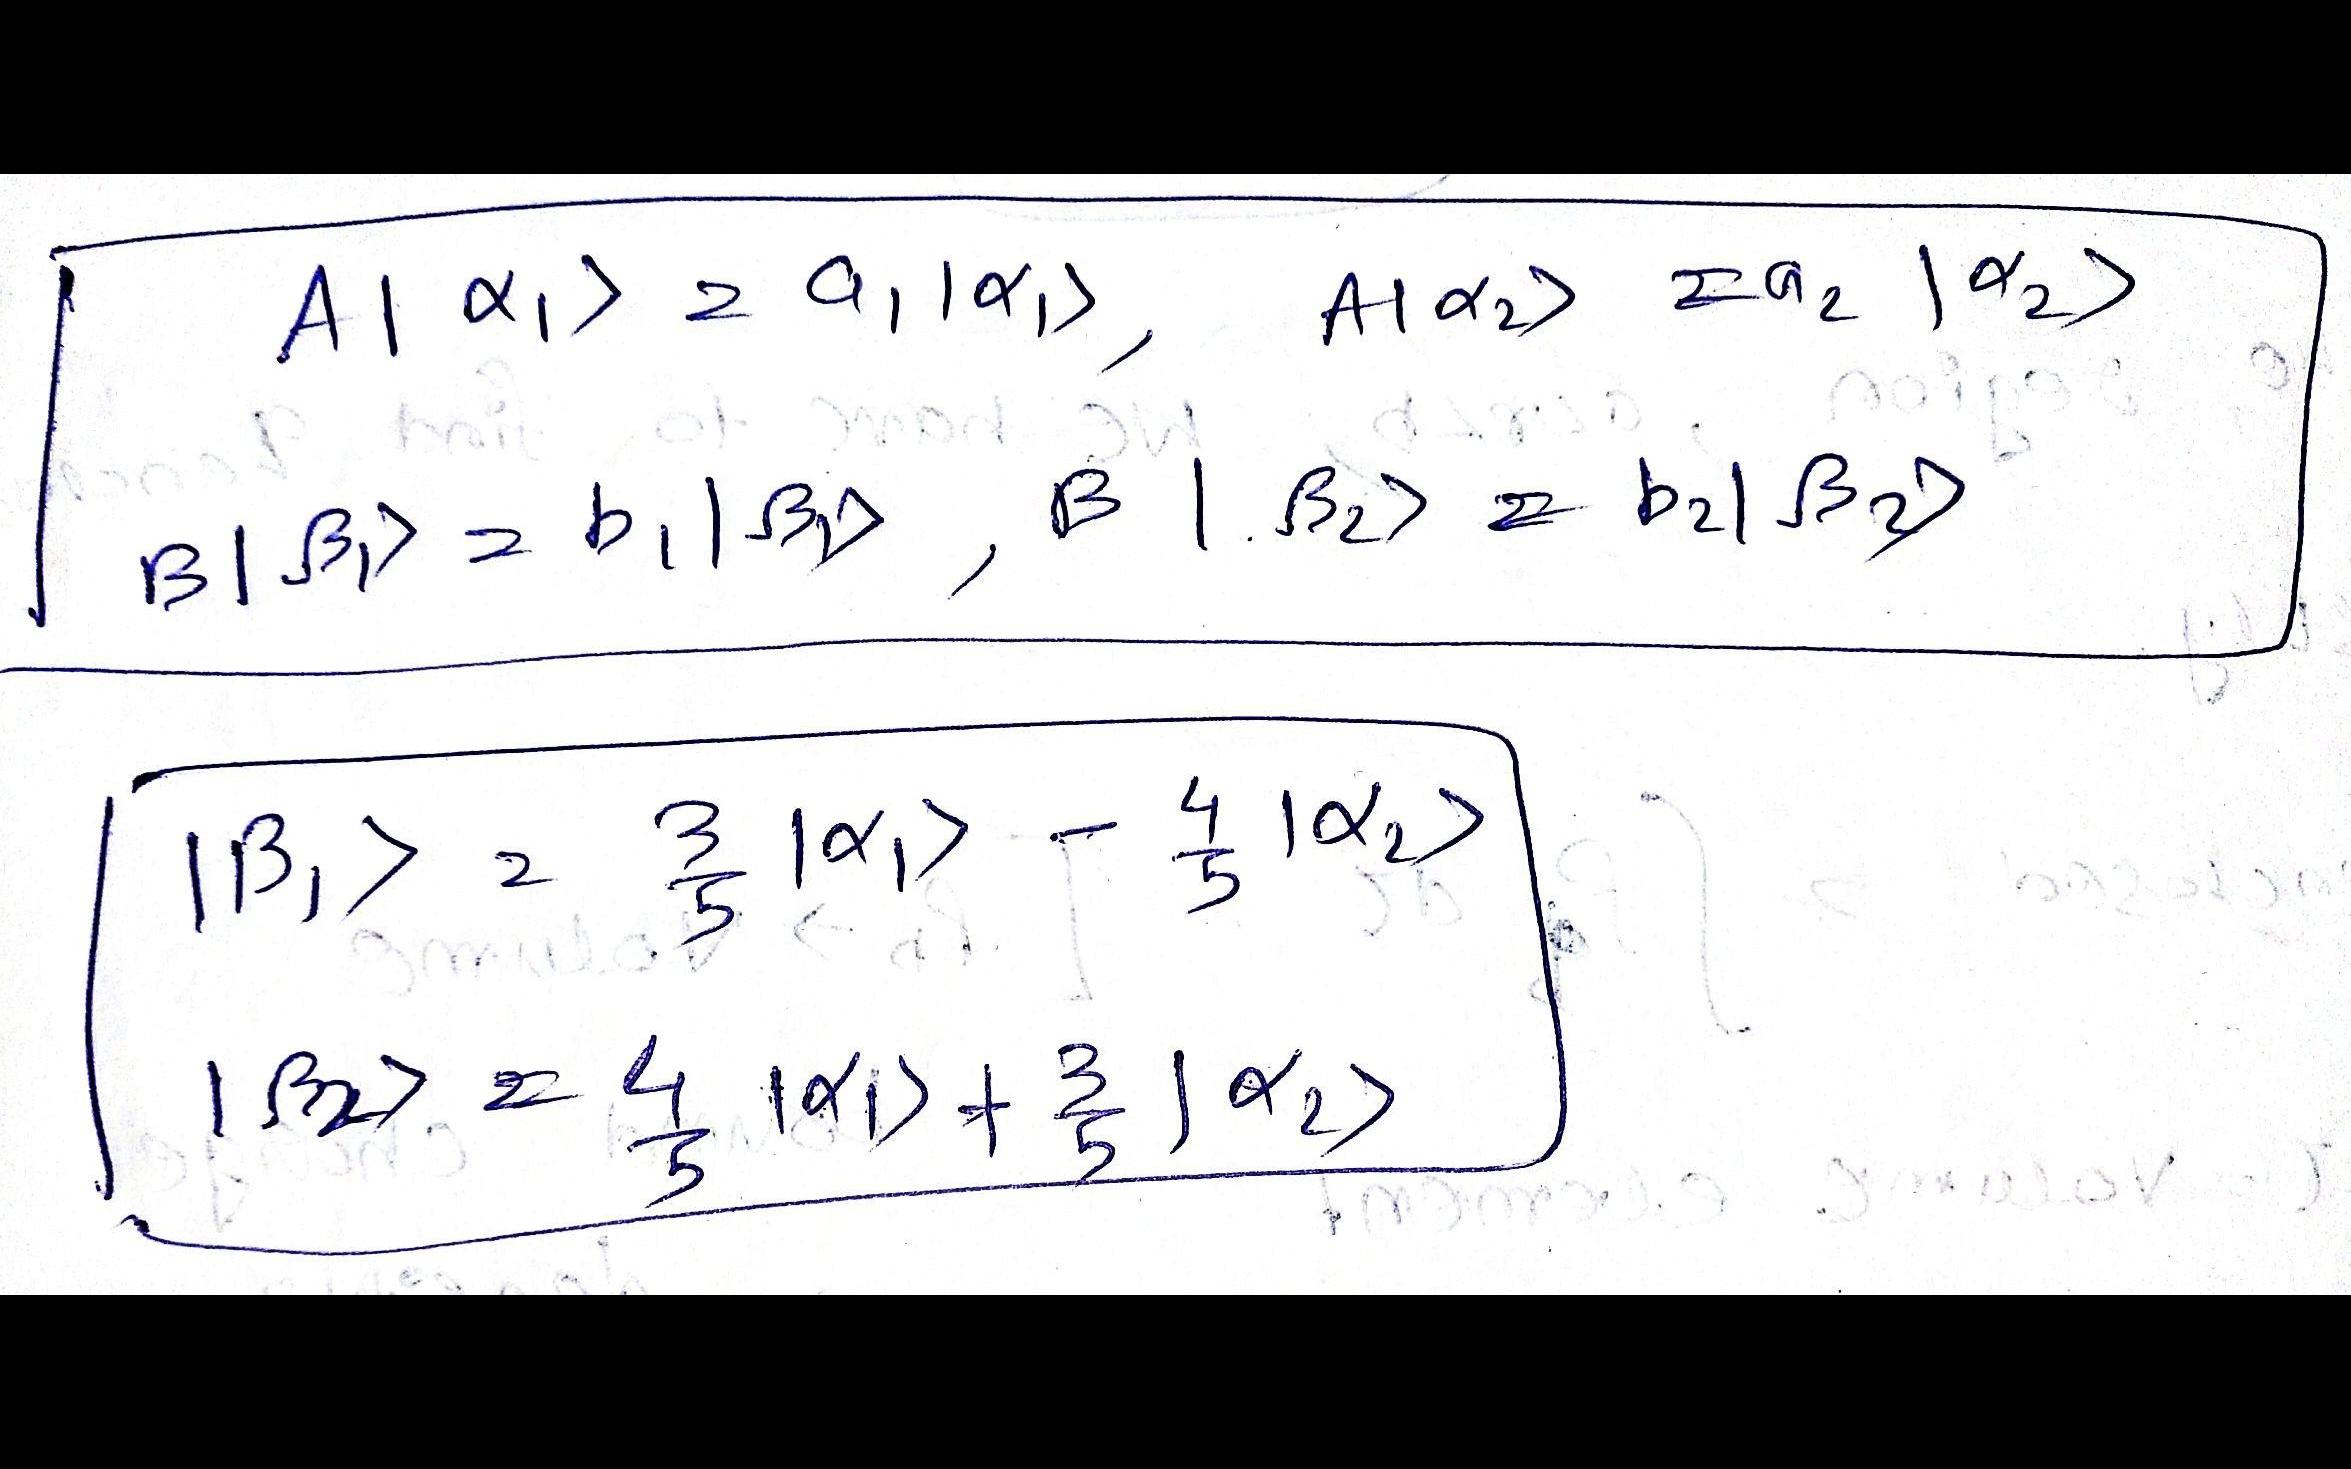 A| α₁> = a₁|α₁>, A|α₂> = a₂ |α₂>
B|β₁> = b₁|β₁>, B|β₂> = b₂|β₂>
|β₁> = 3/5 |α₁> - 4/5 |α₂>
|β₂> = 4/5 |α₁> + 3/5 |α₂>